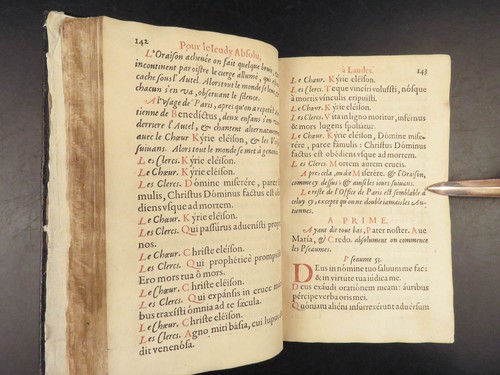 142
Pour le Ieudy Absolu,
L'Oraison acheuée on fait quelque bruit, &
incontinent paroistre le cierge allumé, qui est
caché sous l'Autel. Alors tout le monde se leue &
chacun s'en va, obseruant le silence.
A l'vsage de Paris, apres qu'on a repeté l'An-
tienne de Benedictus, deux enfans s'en vont
derriere l'Autel, & chantent alternatiuement
auec le Chœur Kyrie eléison, & les Versets
suiuans. Alors tout le monde se met à genoux.
Les Clercs. Kýrie eléison.
Le Chœur. Kýrie eléison.
Les Clercs. Dómine miserére, parce fa-
mulis, Christus Dóminus factus est obé-
diens vsque ad mortem.
Le Chœur. Kýrie eléison.
Le Chœur. Kýrie eléison.
Les Clercs. Qui passúrus aduenísti pro-
nos.
Le Chœur. Christe eléison.
Les Clercs. Qui prophéticè prompsísti,
Ero mors tua ô mors.
Le Chœur. Christe eléison.
Les Clercs. Qui expánsis in cruce máni-
bus traxísti ómnia ad te sæcula.
Le Chœur. Christe eléison.
Les Clercs. Agno miti básia, cui lupus de-
dit venenósa.
à Laudes.
143
Le Chœur. Kýrie eléison.
Les Clercs. Te que vincíri voluísti, nósque
à mortis vínculis eripuísti.
Le Chœur. Kýrie eléison.
Les Clercs. Vita in ligno móritur, inférnus
& mors lugens spoliátur.
Le Chœur. Kýrie eléison, Dómine misé-
rére, parce fámulis: Christus Dóminus
factus est obédiens vsque ad mortem.
Le Chœur. Mortem autem crucis.
Apres cela, on dit Miserére, & l'Oraison,
comme cy dessus & ainsi les iours suiuans.
Le reste de l'Office de Paris est semblable à
celuy cy, excepté qu'on ne double iamais les An-
tiennes.
A PRIME.
Ayant dit tout bas, Pater noster. Aue
María, & Credo. absolument on commence
les Pseaumes.
Pseaume 53.
Deus in nómine tuo saluum me fac:
& in virtúte tua iúdica me.
Deus exáudi oratiónem meam: áuribus
pércipe verba oris mei.
Quóniam aliéni insurrexérunt aduérsùm